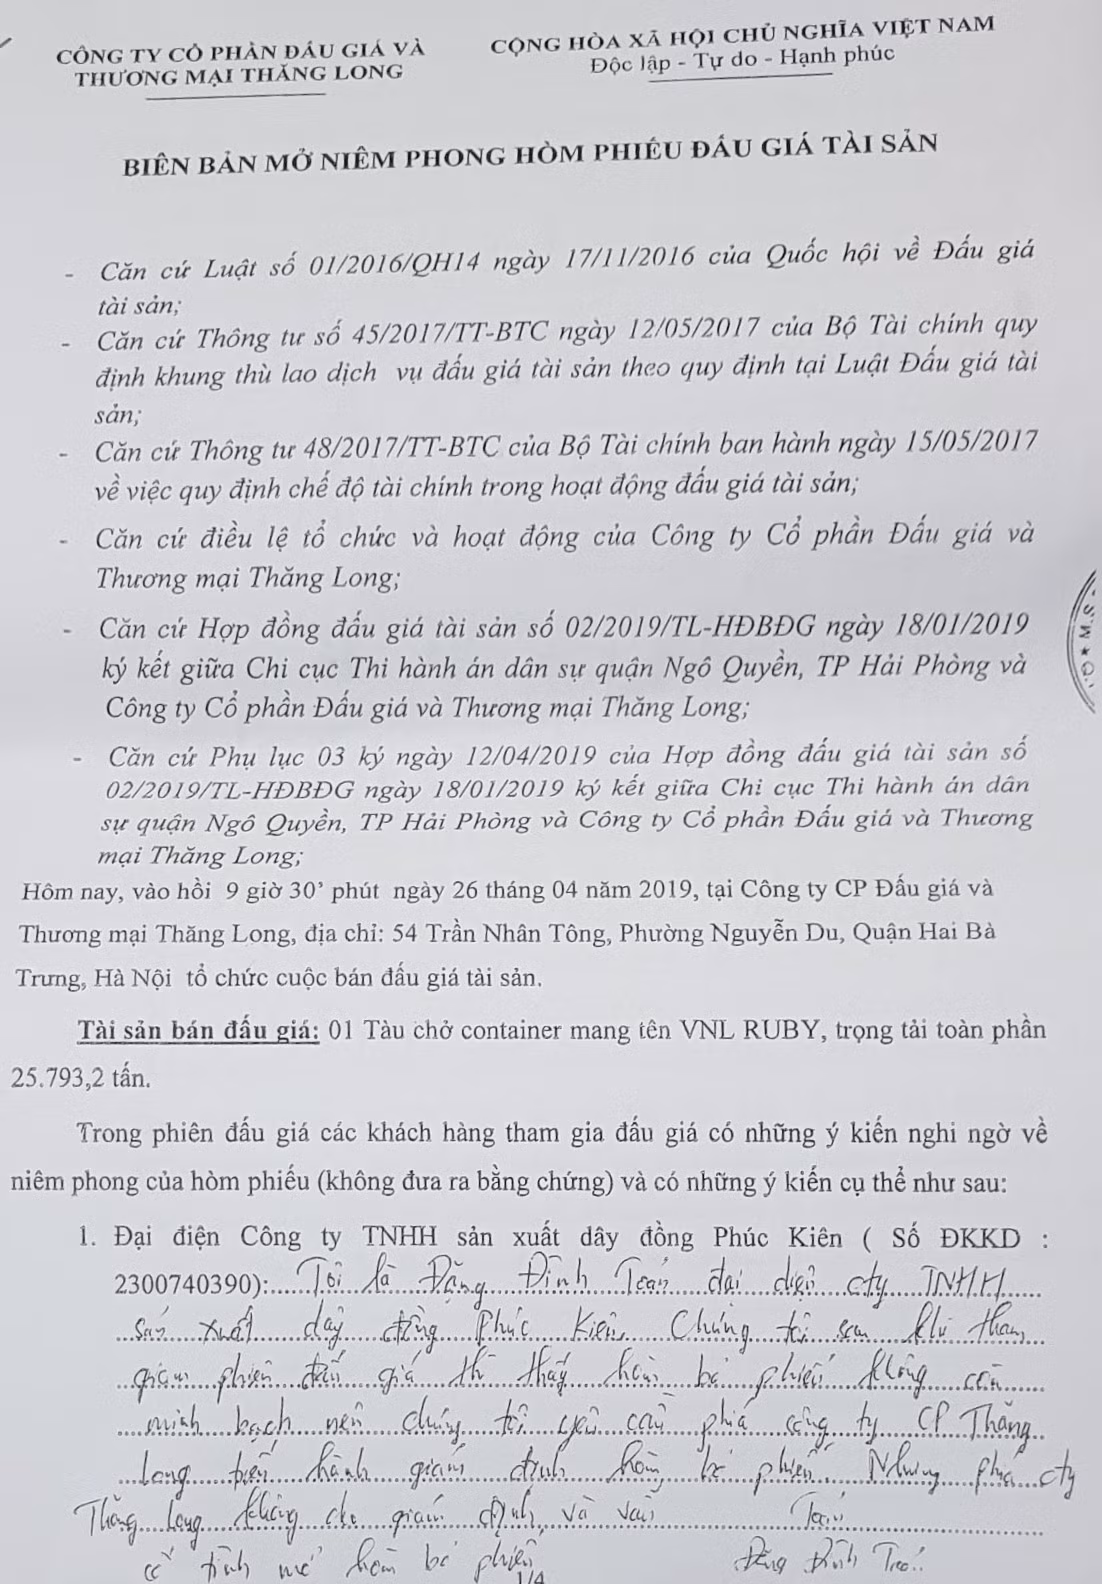 CÔNG TY CỔ PHẦN ĐẤU GIÁ VÀ
THƯƠNG MẠI THĂNG LONG
CỘNG HÒA XÃ HỘI CHỦ NGHĨA VIỆT NAM
Độc lập - Tự do - Hạnh phúc
BIÊN BẢN MỞ NIÊM PHONG HÒM PHIẾU ĐẤU GIÁ TÀI SẢN
- Căn cứ Luật số 01/2016/QH14 ngày 17/11/2016 của Quốc hội về Đấu giá
tài sản;
- Căn cứ Thông tư số 45/2017/TT-BTC ngày 12/05/2017 của Bộ Tài chính quy
định khung thù lao dịch vụ đấu giá tài sản theo quy định tại Luật Đấu giá tài
sản;
- Căn cứ Thông tư 48/2017/TT-BTC của Bộ Tài chính ban hành ngày 15/05/2017
về việc quy định chế độ tài chính trong hoạt động đấu giá tài sản;
- Căn cứ điều lệ tổ chức và hoạt động của Công ty Cổ phần Đấu giá và
Thương mại Thăng Long;
- Căn cứ Hợp đồng đấu giá tài sản số 02/2019/TL-HĐBĐG ngày 18/01/2019
ký kết giữa Chi cục Thi hành án dân sự quận Ngô Quyền, TP Hải Phòng và
Công ty Cổ phần Đấu giá và Thương mại Thăng Long;
- Căn cứ Phụ lục 03 ký ngày 12/04/2019 của Hợp đồng đấu giá tài sản số
02/2019/TL-HĐBĐG ngày 18/01/2019 ký kết giữa Chi cục Thi hành án dân
sự quận Ngô Quyền, TP Hải Phòng và Công ty Cổ phần Đấu giá và Thương
mại Thăng Long;
Hôm nay, vào hồi 9 giờ 30’ phút ngày 26 tháng 04 năm 2019, tại Công ty CP Đấu giá và
Thương mại Thăng Long, địa chỉ: 54 Trần Nhân Tông, Phường Nguyễn Du, Quận Hai Bà
Trưng, Hà Nội tổ chức cuộc bán đấu giá tài sản.
Tài sản bán đấu giá: 01 Tàu chở container mang tên VNL RUBY, trọng tải toàn phần
25.793,2 tấn.
Trong phiên đấu giá các khách hàng tham gia đấu giá có những ý kiến nghi ngờ về
niêm phong của hòm phiếu (không đưa ra bằng chứng) và có những ý kiến cụ thể như sau:
1. Đại điện Công ty TNHH sản xuất dây đồng Phúc Kiên ( Số ĐKKD :
2300740390): Tôi là Đặng Đình Toán đại diện cty TNHH
sản xuất dây đồng Phúc Kiên, Chúng tôi sau khi tham
gia phiên đấu giá thì thấy hòm bỏ phiếu không còn
minh bạch nên chúng tôi yêu cầu phía công ty CP Thăng
Long tiến hành giám định hòm bỏ phiếu. Nhưng phía cty
Thăng Long không cho giám định, và vẫn
cố tình mở hòm bỏ phiếu
Toán
Đặng Đình Toán
1/4
M.S